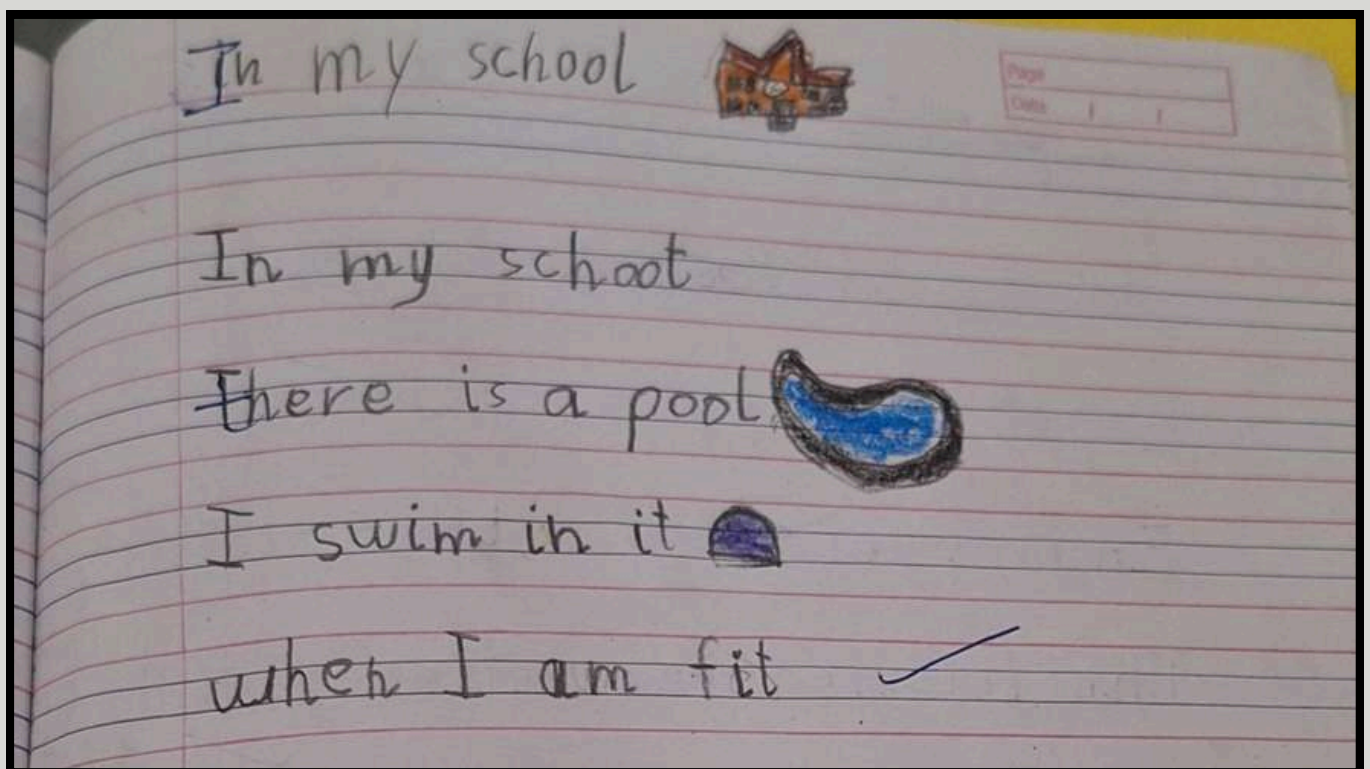 In my school
Page
Date / /
In my school
there is a pool
I swim in it
when I am fit